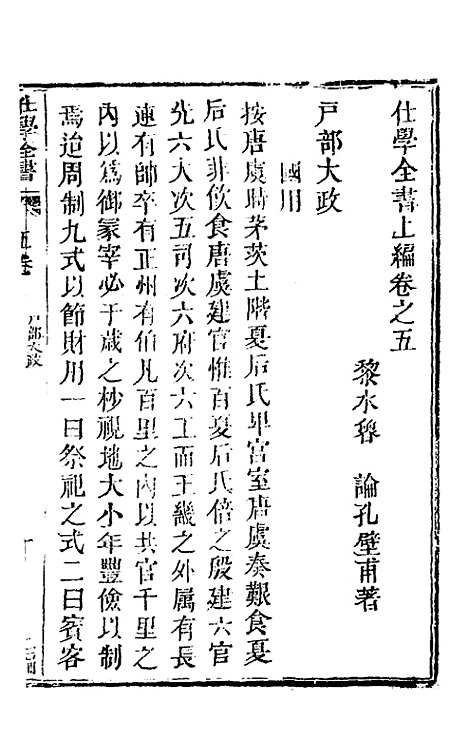 仕學全書上編卷之五
黎水魯 論孔壁甫著
戶部大政
國用
按唐虞時茅茨土階夏后氏卑宮室唐虞奏艱食夏
后氏菲飲食唐虞建官惟百夏后氏倍之殷建六官
先六大次五司次六府次六工而王畿之外屬有長
連有帥卒有正州有伯凡百里之內以共官千里之
內以爲御冢宰必于歲之杪視地大小年豐儉以制
焉迨周制九式以節財用一曰祭祀之式二曰賓客
仕學全書 上 五卷 戶部大政